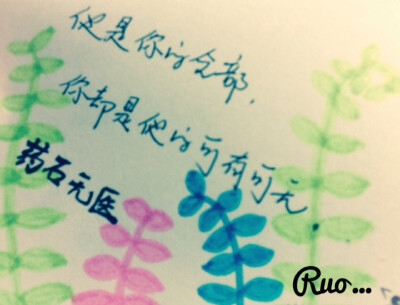 他是你的全部.
你却是他的可有可无
药石无医
Ruo...